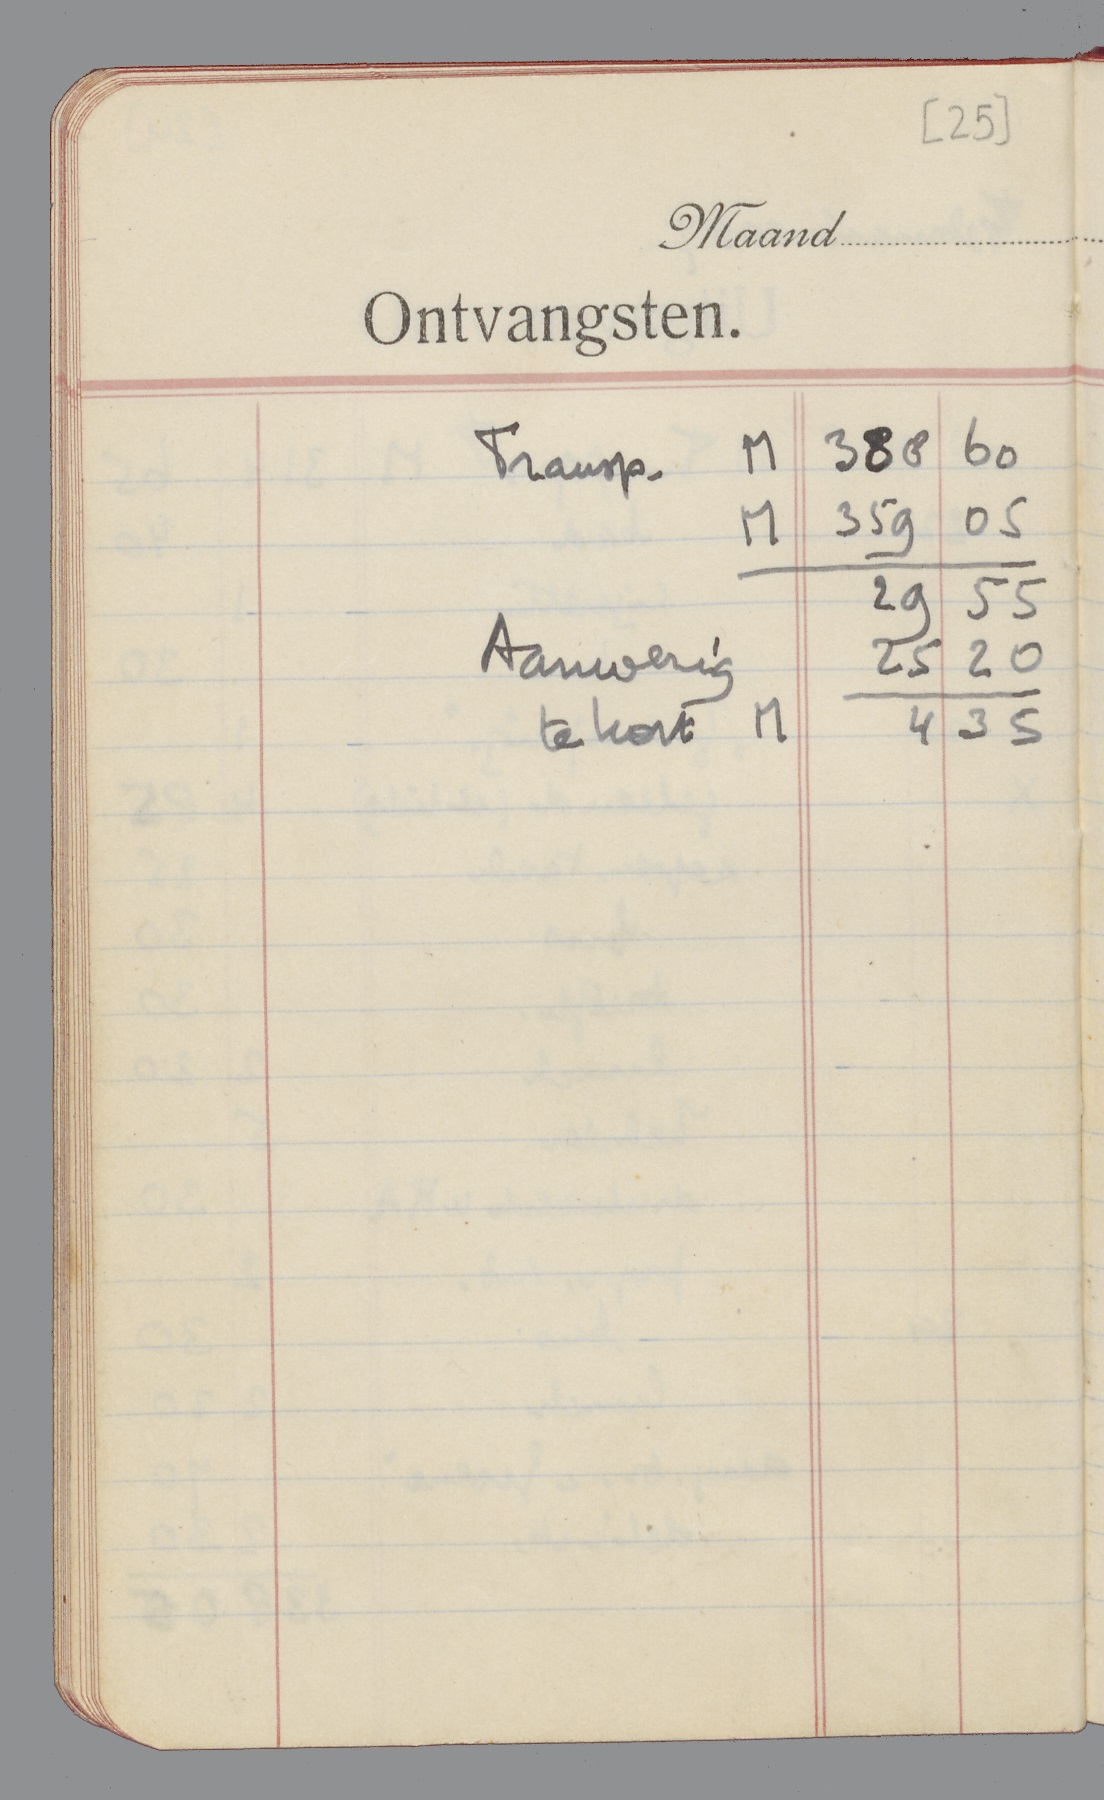 [25]
Maand
Ontvangsten.
Transp. M 388 60
M 359 05
29 55
Aanwezig 25 20
te kort M 4 35